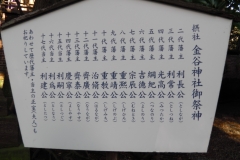 摂社 金谷神社御祭神
二代藩主 利長公
三代藩主 利常公
四代藩主 光高公
五代藩主 綱紀公
六代藩主 吉徳公
七代藩主 宗辰公
八代藩主 重熈公
九代藩主 重靖公
十代藩主 重教公
十一代藩主 治脩公
十二代藩主 斉広公
十三代藩主 斉泰公
十四代藩主 慶寧公
十五代 利嗣公
十六代 利為公
十七代 利建公
あわせて歴代藩主・当主の正室(夫人)も
お祀りしています。